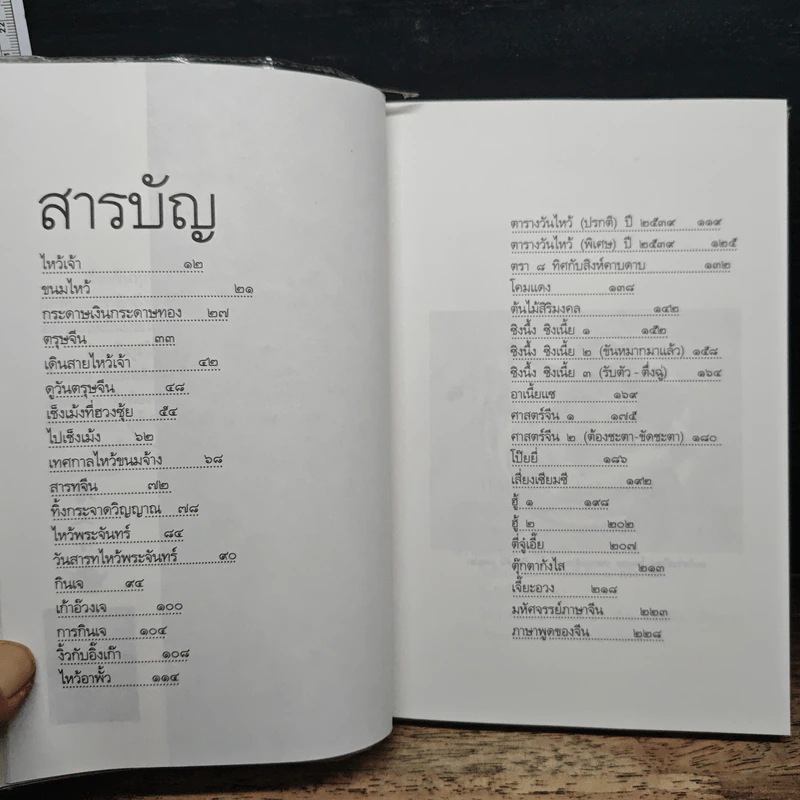 สารบัญ
ไหว้เจ้า ๑๒
ขนมไหว้ ๒๑
กระดาษเงินกระดาษทอง ๒๗
ตรุษจีน ๓๓
เดินสายไหว้เจ้า ๔๒
ดูวันตรุษจีน ๔๘
เช็งเม้งที่ฮวงซุ้ย ๕๔
ไปเช็งเม้ง ๖๒
เทศกาลไหว้ขนมจ้าง ๖๘
สารทจีน ๗๒
ทิ้งกระจาดวิญญาณ ๗๘
ไหว้พระจันทร์ ๘๔
วันสารทไหว้พระจันทร์ ๙๐
กินเจ ๙๔
เก้าอ๊วงเจ ๑๐๐
การกินเจ ๑๐๔
งิ้วกับอิ้งเก๊า ๑๐๘
ไหว้อาพั้ว ๑๑๔
ตารางวันไหว้ (ปรกติ) ปี ๒๕๓๙ ๑๑๙
ตารางวันไหว้ (พิเศษ) ปี ๒๕๓๙ ๑๒๕
ตรา ๘ ทิศกับสิงห์คาบดาบ ๑๓๒
โคมแดง ๑๓๘
ต้นไม้สิริมงคล ๑๔๒
ซิงนึ้ง ซิงเนี้ย ๑ ๑๕๒
ซิงนึ้ง ซิงเนี้ย ๒ (ขันหมากมาแล้ว) ๑๕๘
ซิงนึ้ง ซิงเนี้ย ๓ (รับตัว - ตึ่งฉู่) ๑๖๔
อาเนี้ยแซ ๑๖๙
ศาสตร์จีน ๑ ๑๗๕
ศาสตร์จีน ๒ (ต้องชะตา-ขัดชะตา) ๑๘๐
โป๊ยยี่ ๑๘๖
เสี่ยงเซียมซี ๑๙๒
ฮู้ ๑ ๑๙๘
ฮู้ ๒ ๒๐๒
ตี่จู่เอี๊ย ๒๐๗
ตุ๊กตากังไส ๒๑๓
เจี๊ยะอวง ๒๑๘
มหัศจรรย์ภาษาจีน ๒๒๓
ภาษาพูดของจีน ๒๒๘